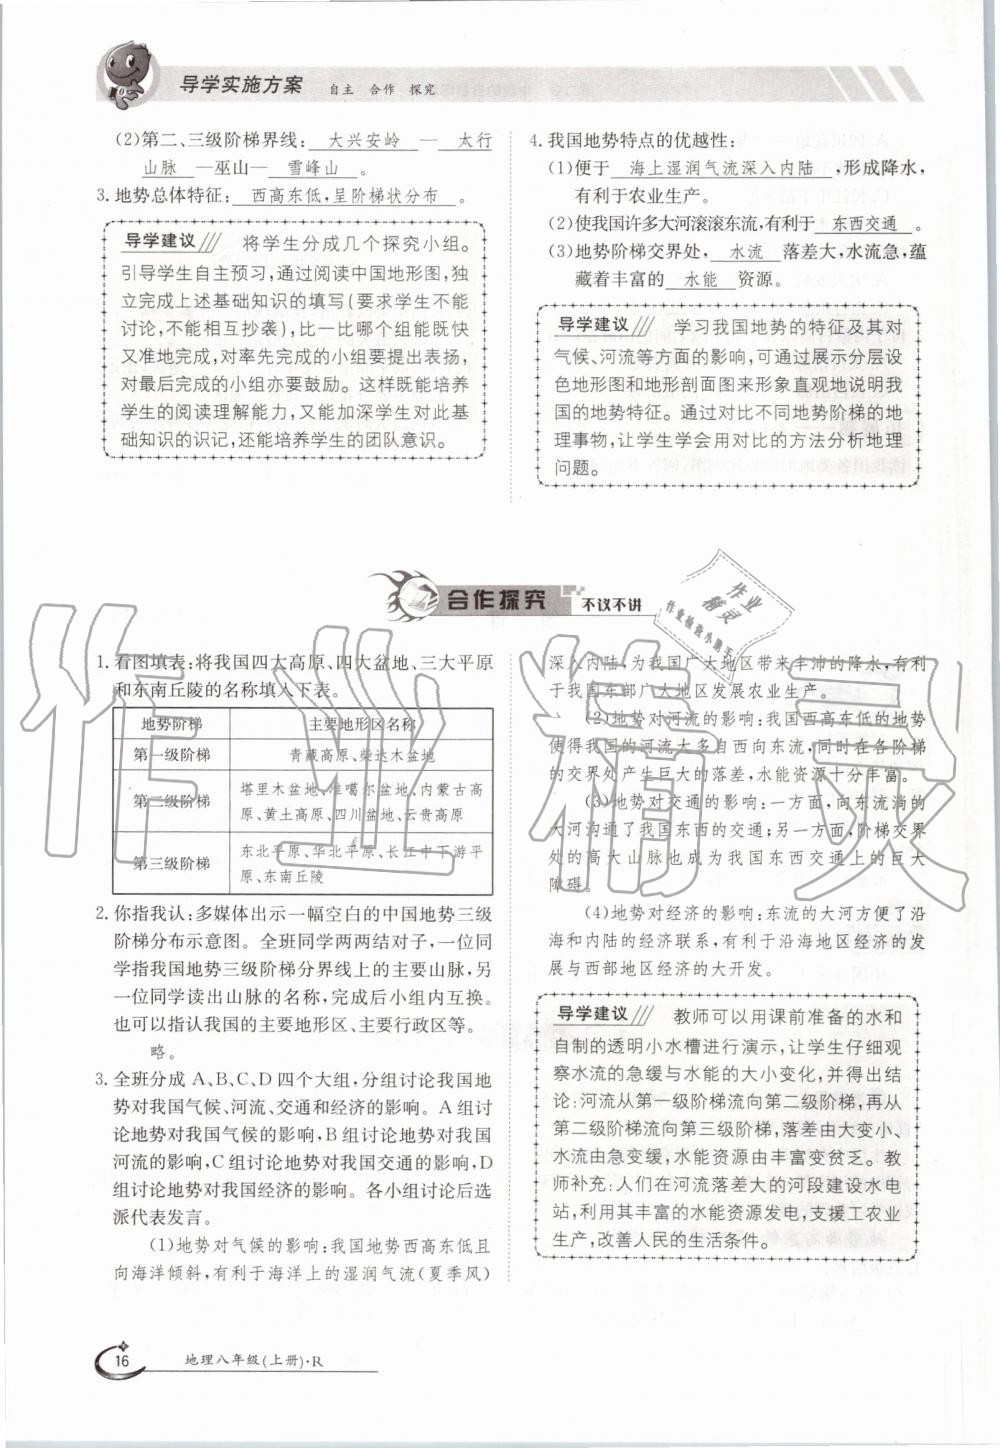 导学实施方案 自主 合作 探究
(2)第二、三级阶梯界线: 大兴安岭 — 太行
山脉 —巫山— 雪峰山 。
3. 地势总体特征: 西高东低,呈阶梯状分布 。
导学建议 /// 将学生分成几个探究小组。
引导学生自主预习,通过阅读中国地形图,独
立完成上述基础知识的填写(要求学生不能
讨论,不能相互抄袭),比一比哪个组能既快
又准地完成,对率先完成的小组要提出表扬,
对最后完成的小组亦要鼓励。这样既能培养
学生的阅读理解能力,又能加深学生对此基
础知识的识记,还能培养学生的团队意识。
4. 我国地势特点的优越性:
(1)便于 海上湿润气流深入内陆 ,形成降水,
有利于农业生产。
(2)使我国许多大河滚滚东流,有利于 东西交通 。
(3)地势阶梯交界处, 水流 落差大,水流急,蕴
藏着丰富的 水能 资源。
导学建议 /// 学习我国地势的特征及其对
气候、河流等方面的影响,可通过展示分层设
色地形图和地形剖面图来形象直观地说明我
国的地势特征。通过对比不同地势阶梯的地
理事物,让学生学会用对比的方法分析地理
问题。
合作探究 不议不讲
1. 看图填表:将我国四大高原、四大盆地、三大平原
和东南丘陵的名称填入下表。
地势阶梯 主要地形区名称
第一级阶梯 青藏高原、柴达木盆地
第二级阶梯 塔里木盆地、准噶尔盆地、内蒙古高
原、黄土高原、四川盆地、云贵高原
第三级阶梯 东北平原、华北平原、长江中下游平
原、东南丘陵
2. 你指我认:多媒体出示一幅空白的中国地势三级
阶梯分布示意图。全班同学两两结对子,一位同
学指我国地势三级阶梯分界线上的主要山脉,另
一位同学读出山脉的名称,完成后小组内互换。
也可以指认我国的主要地形区、主要行政区等。
略。
3. 全班分成 A、B、C、D 四个大组,分组讨论我国地
势对我国气候、河流、交通和经济的影响。A 组讨
论地势对我国气候的影响,B 组讨论地势对我国
河流的影响,C 组讨论地势对我国交通的影响,D
组讨论地势对我国经济的影响。各小组讨论后选
派代表发言。
(1)地势对气候的影响:我国地势西高东低且
向海洋倾斜,有利于海洋上的湿润气流(夏季风)
深入内陆,为我国广大地区带来丰沛的降水,有利
于我国东部广大地区发展农业生产。
(2)地势对河流的影响:我国西高东低的地势
使得我国的河流大多自西向东流,同时在各阶梯
的交界处产生巨大的落差,水能资源十分丰富。
(3)地势对交通的影响:一方面,向东流淌的
大河沟通了我国东西的交通;另一方面,阶梯交界
处的高大山脉也成为我国东西交通上的巨大
障碍。
(4)地势对经济的影响:东流的大河方便了沿
海和内陆的经济联系,有利于沿海地区经济的发
展与西部地区经济的大开发。
导学建议 /// 教师可以用课前准备的水和
自制的透明小水槽进行演示,让学生仔细观
察水流的急缓与水能的大小变化,并得出结
论:河流从第一级阶梯流向第二级阶梯,再从
第二级阶梯流向第三级阶梯,落差由大变小、
水流由急变缓,水能资源由丰富变贫乏。教
师补充:人们在河流落差大的河段建设水电
站,利用其丰富的水能资源发电,支援工农业
生产,改善人民的生活条件。
作业精灵
作业
精灵
作业检查小助手
16 地理八年级(上册)·R